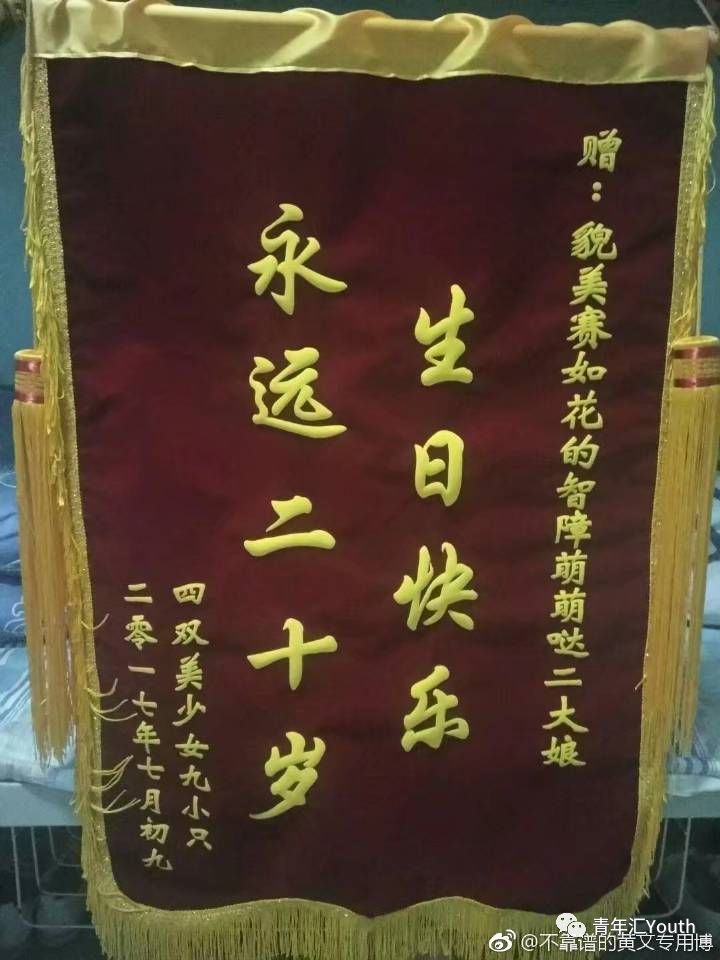 赠：貌美赛如花的智障萌萌哒二大娘
生日快乐
永远二十岁
四双美少女九小只
二零一七年七月初九
青年汇Youth
@不靠谱的黄文专用博